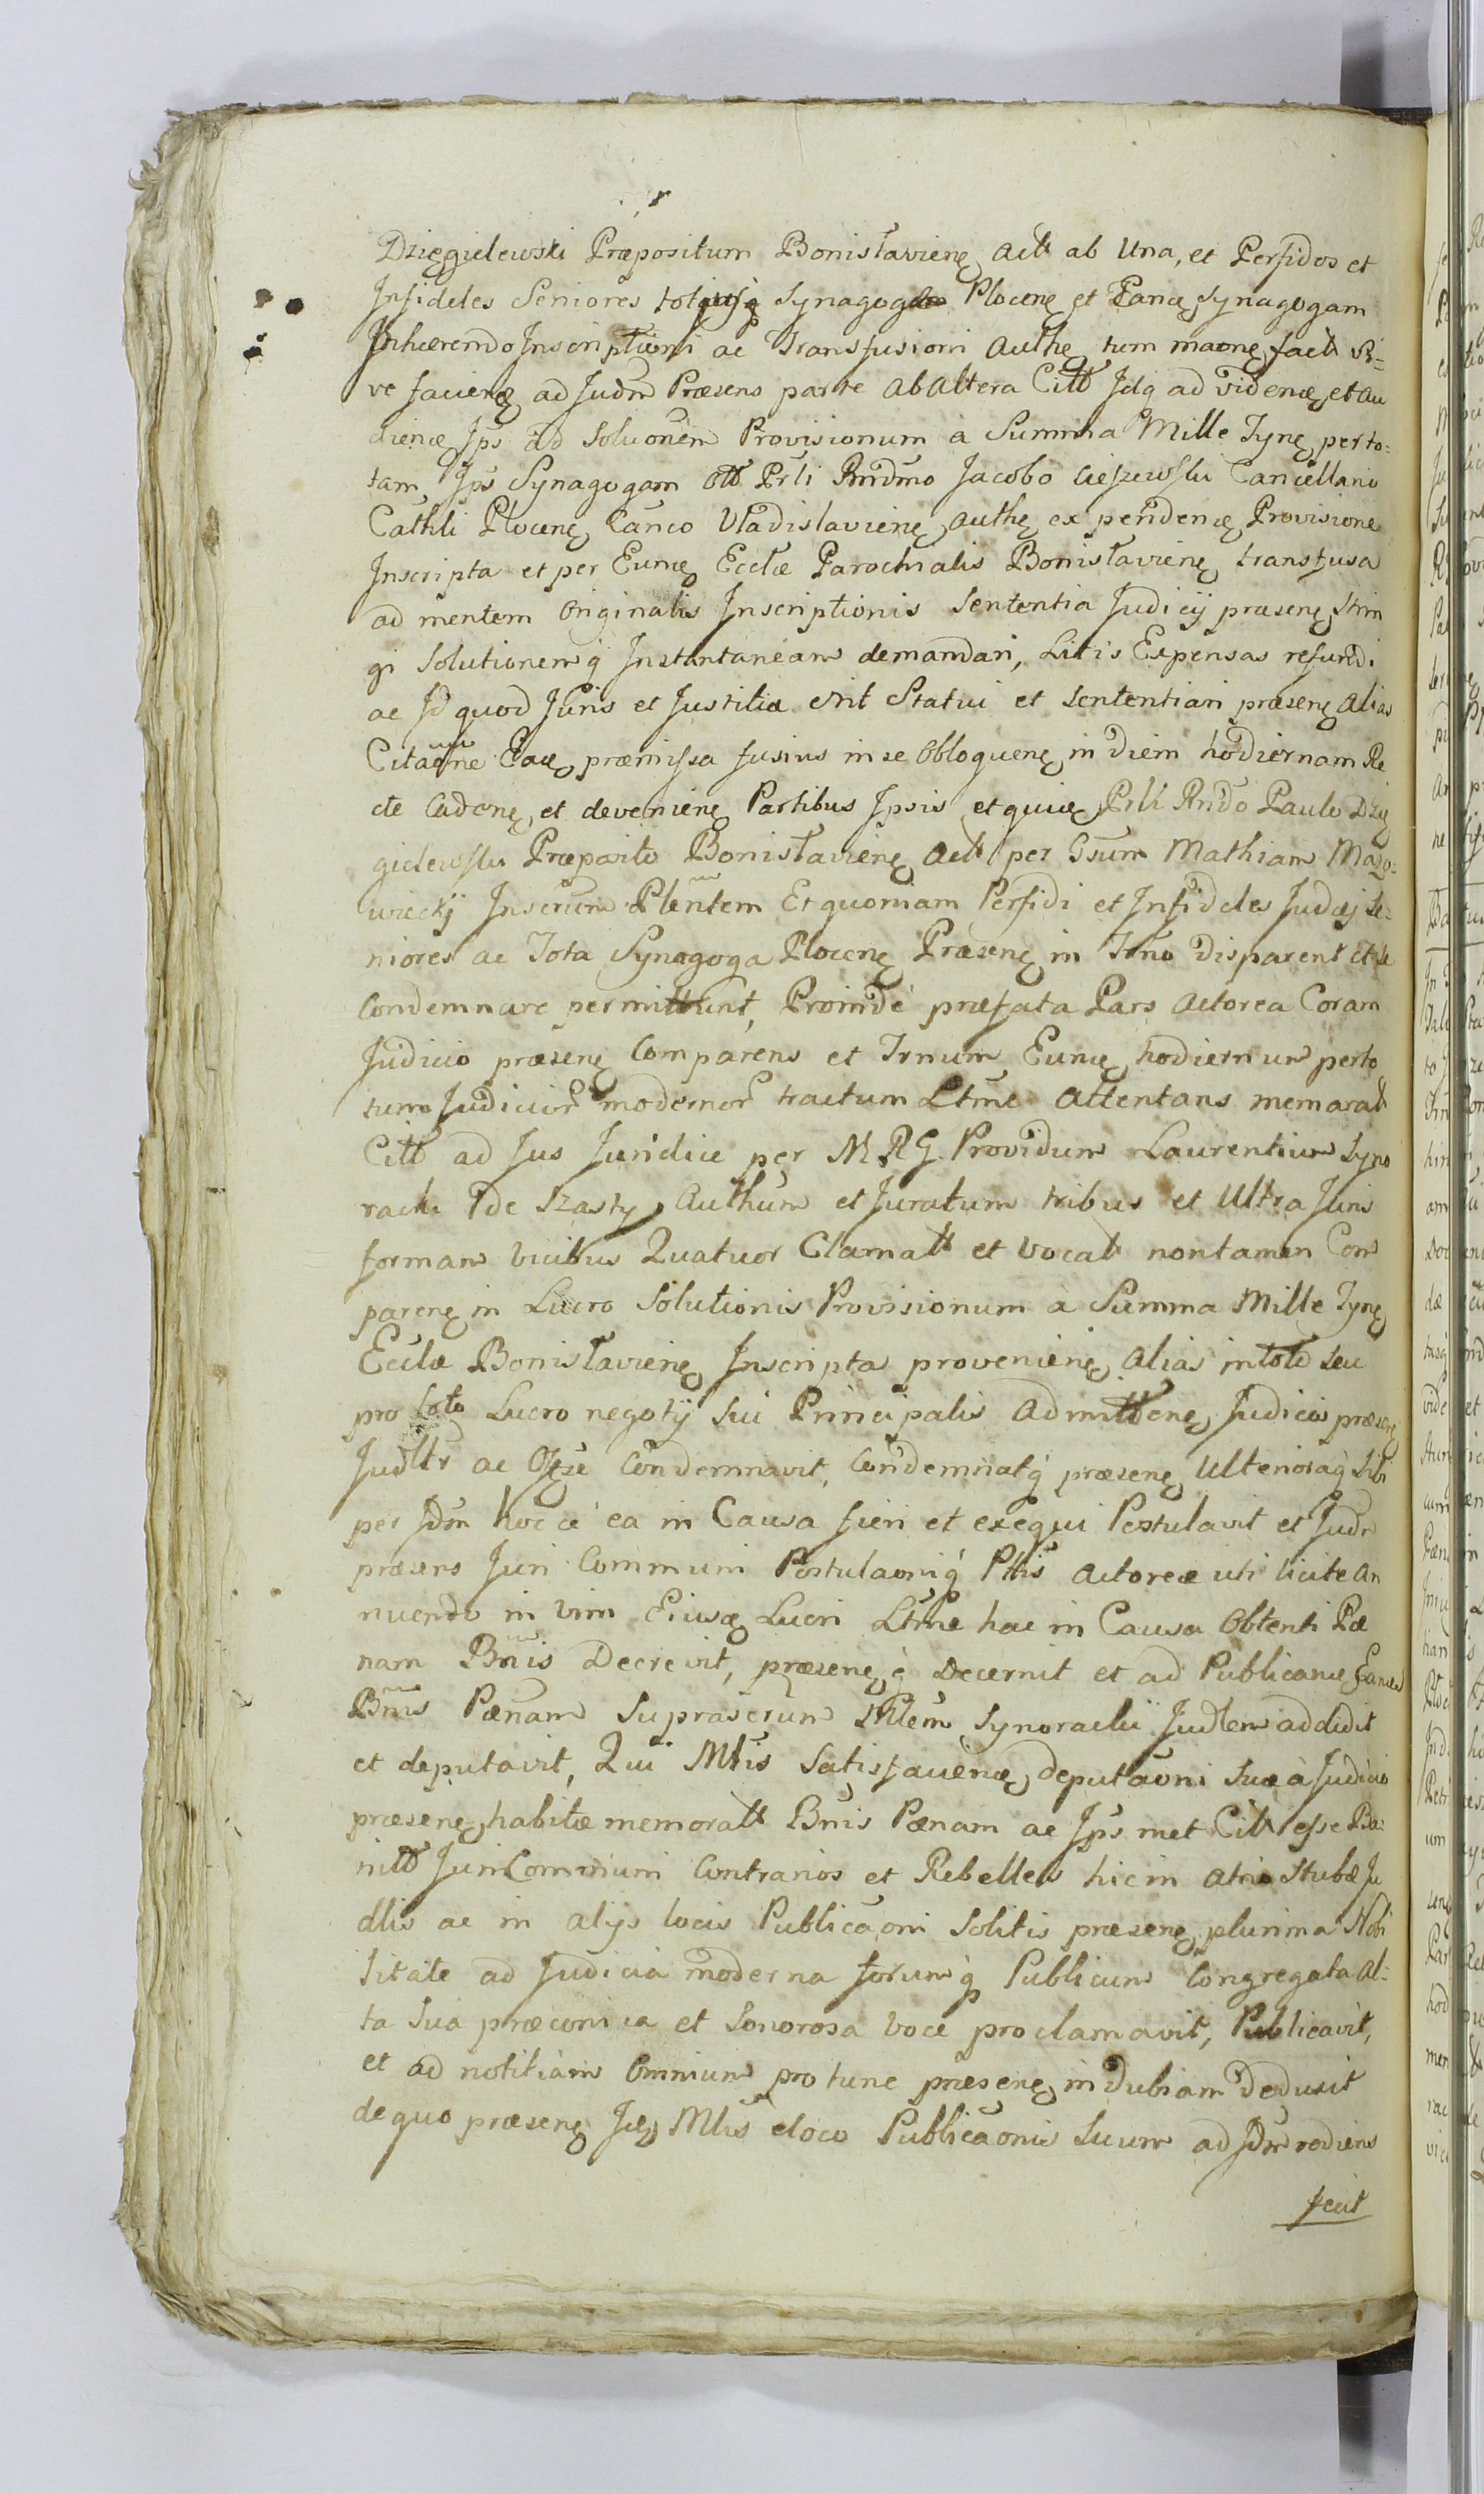 Dzięgielewski Præpositum Bonisławienę Actt ab Una, et Perfidos et
Infideles Seniores totamq Synagogam Plocenę et Eandę Synagogam
Inhærendo Inscriptioni ac Transfusioni Authę tum maonę factt si=
ve faciendę ad Judm Præsens parte ab altera Citt Idq ad videndę et au
diendę Ips ad Soluonem Provisionum à Summa Mille Tynę per to=
tam Ips Synagogam Ott Prli Rndmo Jacobo Cieszewski Cancellario
Cathli Plocenę Canco Vladislavienę Authę ex pendendę Provisione
Inscripta et per Eundę Ecclæ Parochialis Bonisławienę transfusa
ad mentem Originalis Inscriptionis Sententia Judicij præsenę Strin
gi Solutionemq Instantaneam demandari, Litis Expensas refundi
ac Id quod Juris et Justitiæ erit Statui et Sententiari præsenę alias
Citaone Eadę præmissa fusius in se Obloquenę in diem hodiernam Re
cte Cadenę, et devenienę Partibus Ipsis et quidę Prli Rndo Paulo Dzię
gielewski Præposito Bonisławienę Actt per Gsum Mathiam Mazo=
wiecki Inscrum Plentem Et quoniam Perfidi et Infideles Judæj Se=
niores ac Tota Synagoga Plocenę Præsenę in Trno disparent et se
Condemnare permittunt, Proindè præfata Pars Actorea Coram
Judicio præsenę Comparens et Trnum Eundę hodiernum per to
tum Judicior modernor tractum Ltme Attentans memoratt
Citt ad Jus Juridice per M R G. Providum Laurentium Syno
racki de Szasty Authum et Juratum tribus et Ultra Juris
formam vicibus Quatuor Clamatt et Vocatt non tamen Com
parenę in Lucro Solutionis Provisionum à Summa Mille Tynę
Ecclæ Bonisławienę Inscripta provenienę alias in toto seu
pro toto Lucro negotij Sui Principalis Admittenę Judicio præsenę
Judltr ac Ogze Condemnavit, Condemnatq præsenę Ulterioraq Sibi
per Idm hocce ea in Causa fieri et exequi Postulavit et Judm
præsens Juri Communi Postulaoniq Ptis Actoreæ uti licite an
nuendo in vim Eiusdę Lucri Ltme hac in Causa Obtenti Pæ
nam Bnis Decrevit, præsenęq Decernit et ad Publicandę Eandę
Bnis Pænam Suprascrum Mlem Synoracki Judlem addidit
et deputavit, Qui Mlis Satisfaciendę deputaoni Suæ à Judicio
præsenę habitæ memoratt Bnis Pænam ac Ips met Citt esse Ba=
nitt Juri Communi Contrarios et Rebelles hic in atrio Stubæ Ju
dlis ac in alijs locis Publicaoni Solitis præsenę plurima Nobi
litate ad Judicia moderna forumq Publicum Congregata al=
ta Sua præconica et Sonorosa Voce proclamavit, Publicavit,
et ad notitiam Omnium pro tunc præsenę indubiam Deduxit
de quo præsenę Idę Mlis eloco Publicaonis Suum ad Idm rediens
fecit